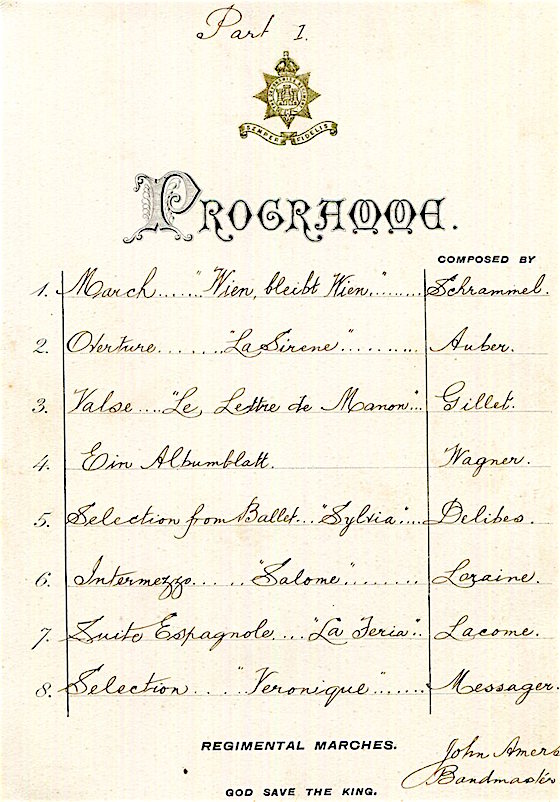 Part 1.
SEMPER FIDELIS
PROGRAMME.
COMPOSED BY
1. March ...... "Wien, bleibt Wien." ........ Schrammel.
2. Overture ....... "La Sirene" .......... Auber.
3. Valse .... "Le Lettre de Manon" ... Gillet.
4. Ein Albumblatt. Wagner.
5. Selection from Ballet... "Sylvia" .... Delibes.
6. Intermezzo ..... "Salome" ........ Loraine.
7. Suite Espagnole .... "La Feria" .. Lacome.
8. Selection .... "Veronique" ....... Messager.
REGIMENTAL MARCHES.
John Amers
Bandmaster
GOD SAVE THE KING.